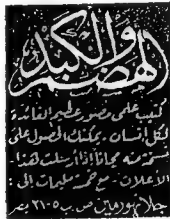 الهضم والكبد
كتيب علمى مصور عظيم الفائدة
لكل انسان. يمكنك الحصول على
نسخة منه مجاناً إذا أرسلت هذا
الأعلان. مع خمسة مليمات إلى:
جلانهورمين ص.ب ٢١٠٥ مصر